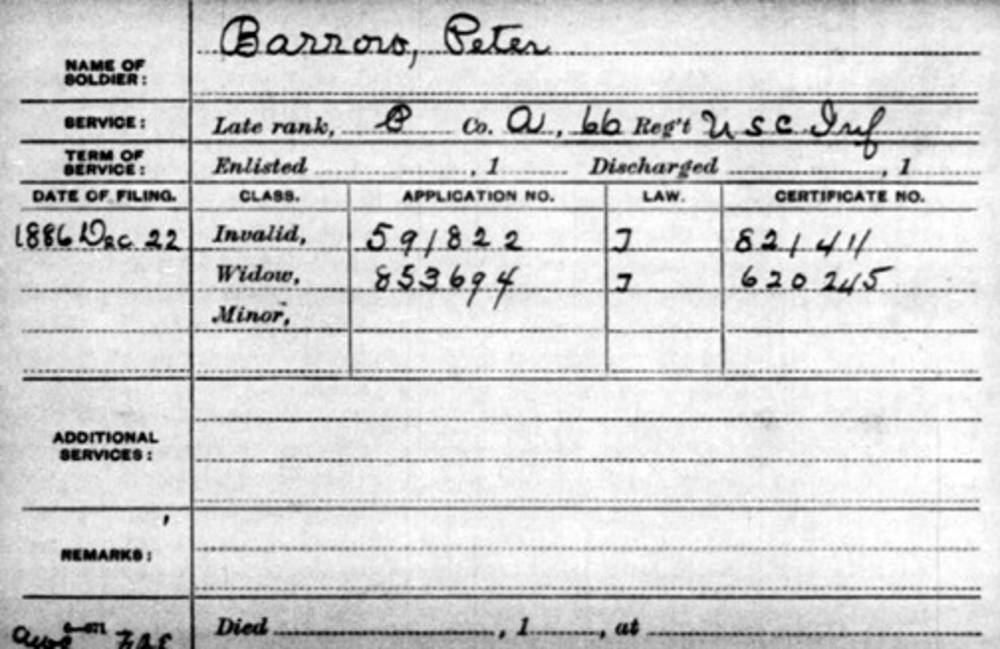 Barrow, Peter
NAME OF
SOLDIER:
SERVICE: Late rank, P Co. A, 66 Reg't U S C Inf
TERM OF
SERVICE: Enlisted , 1 Discharged , 1
DATE OF FILING. CLASS. APPLICATION NO. LAW. CERTIFICATE NO.
1886 Dec. 22 Invalid, 591822 J 821411
Widow, 853694 J 620245
Minor,
ADDITIONAL
SERVICES:
REMARKS:
Died , 1 , at